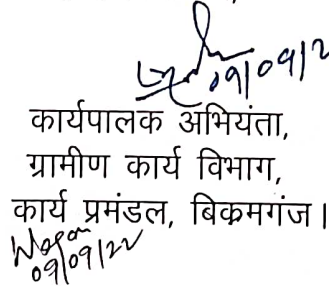 09/09/2
कार्यपालक अभियंता,
ग्रामीण कार्य विभाग,
कार्य प्रमंडल, बिक्रमगंज।
09/09/22